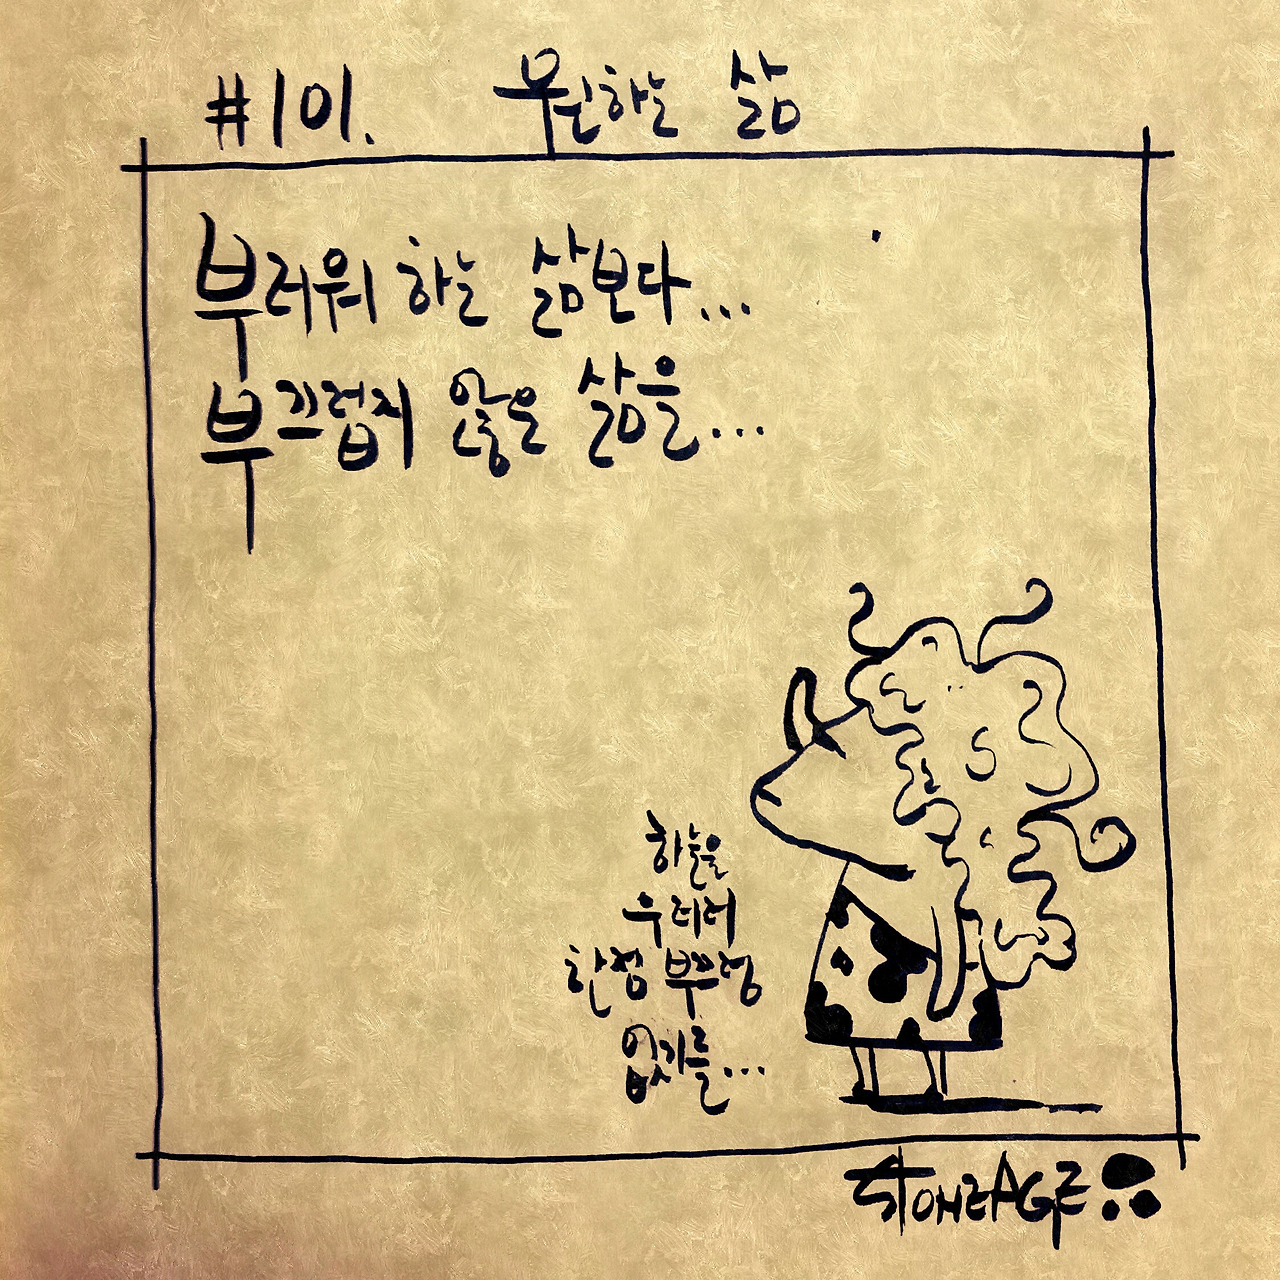 #101. 원하는 삶
부러워 하는 삶보다...
부끄럽지 않은 삶을...
하늘을
우러러
한점 부끄럼
없기를...
STONEAGE